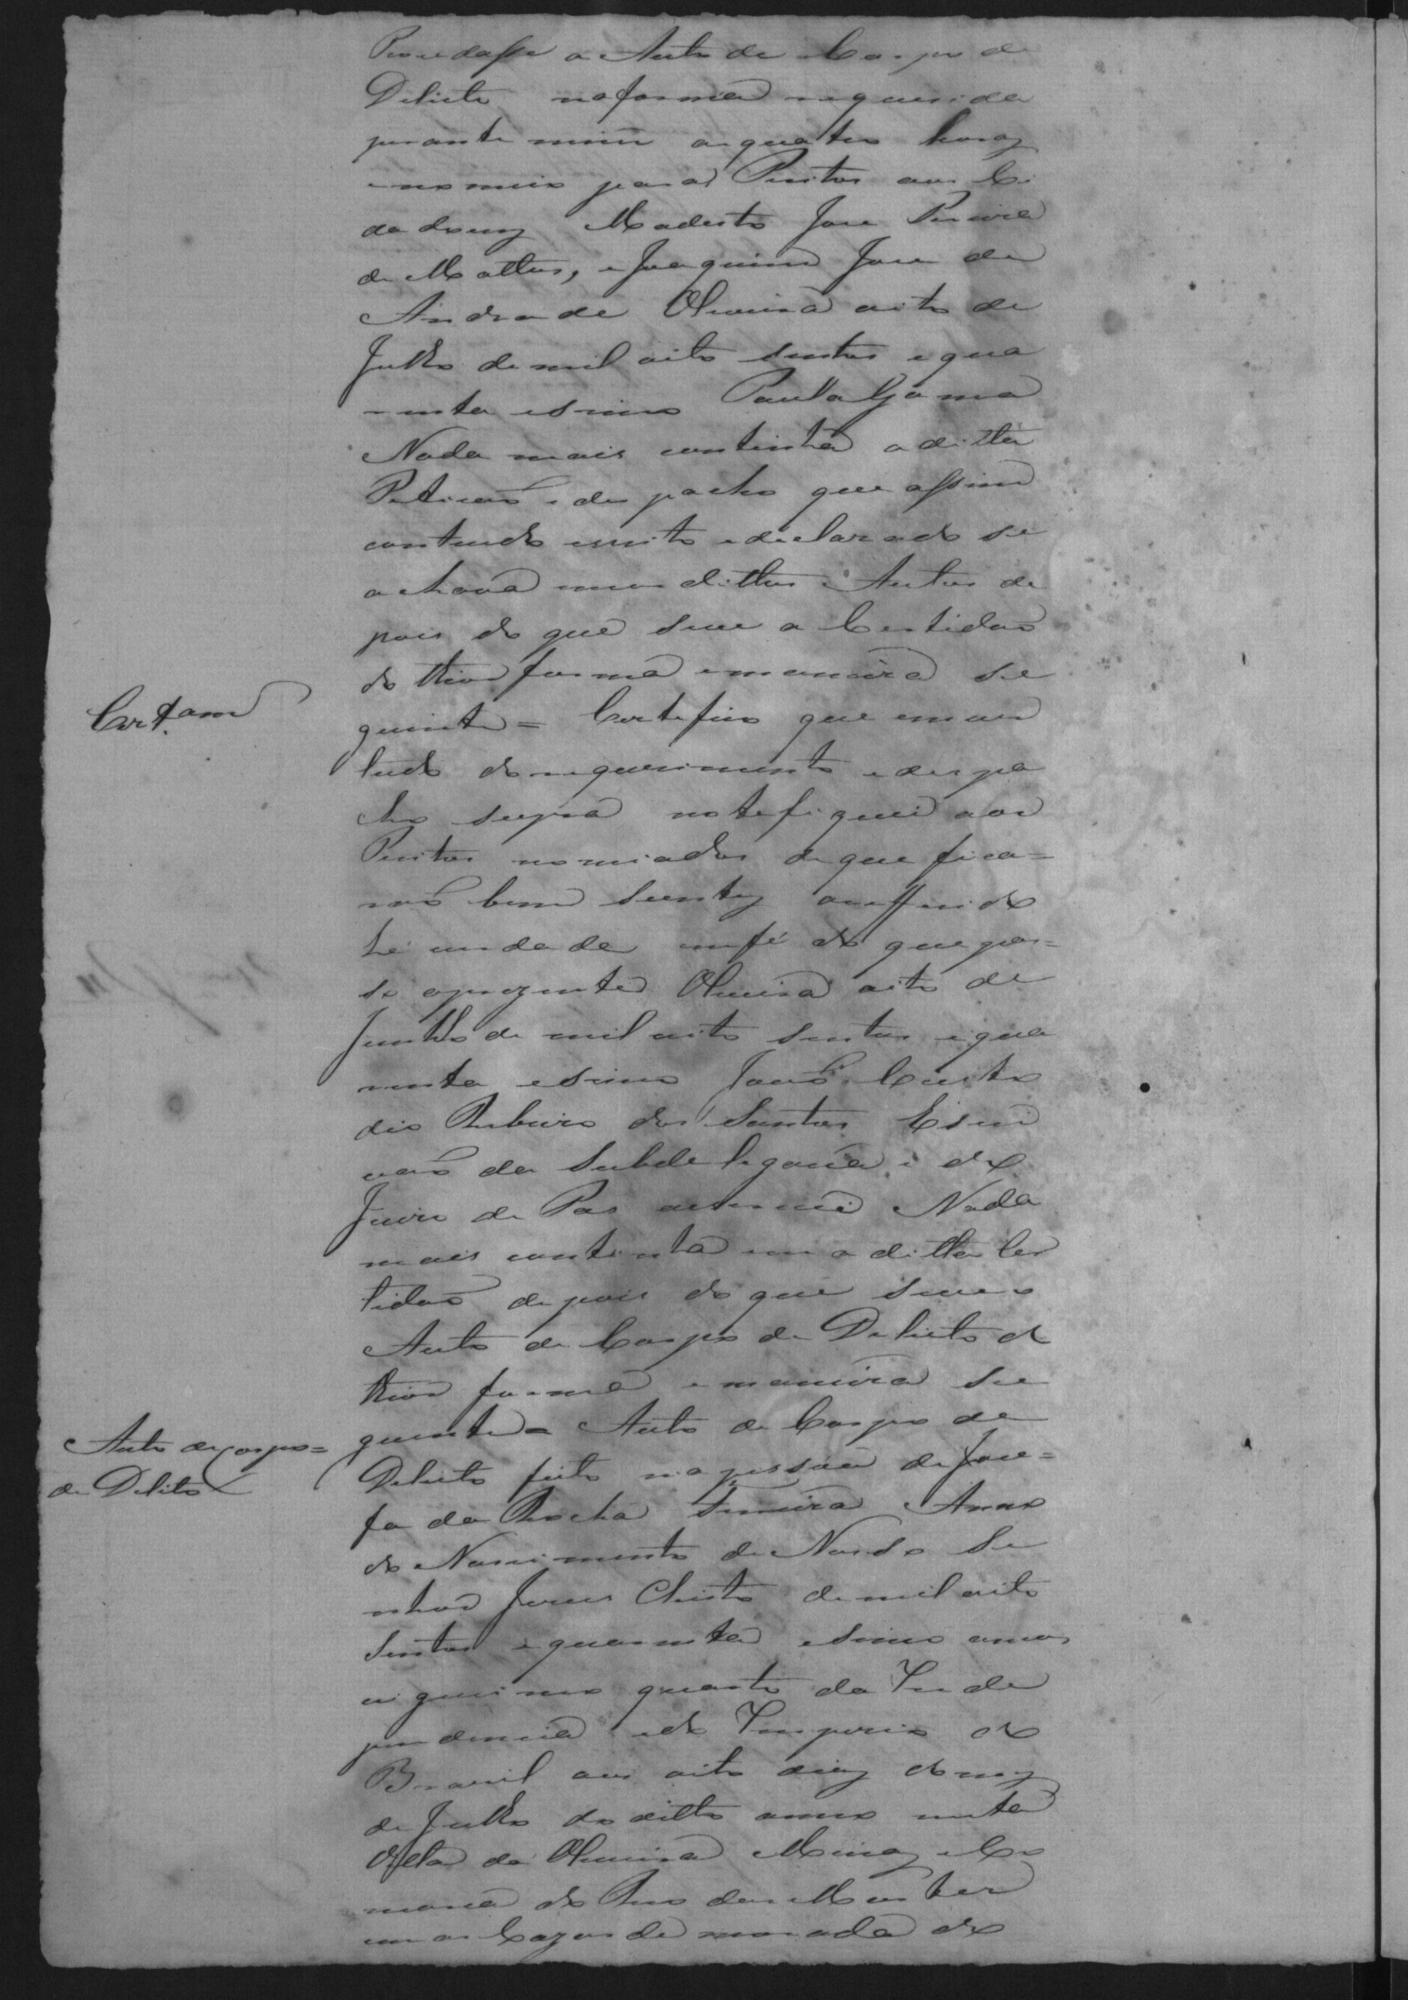 Procedasse a Auto de Corpo de
Delicto na forma requerida
perante mim as quatro horas
e nomeio para Peritos aos Ci
dadoens Modesto Jose Pereira
de Mattos, e Joaquim Jose de
Andrade Oliveira oito de
Julho de mil oito sentos e qua
renta e sinco Paulla Gama
Nada mais continha a ditta
Peticaõ e des pacho que assim
contendo escrito e declarado se
achava nos dittos Autos de
pois do que se ve a Certidaõ
do thior forma e maneira se
Cert.am
guinte = Certefico que em vir
tude do requerimento e despa
cho supra notefiquei aos
Peritos nomiados de que fica=
raõ bem scientes o refferido
hé verdade em fé do que pas=
so a prezente Oliveira oito de
Junho de mil oito sentos e qua
renta e sinco Joaõ Custo
dio Ribeiro dos Santos Escri
vaõ da Subdelegacia e do
Juizo de Pas o escrevi Nada
mais continha em a ditta Cer
tidaõ depois do que se ve o
Auto de Corpo de Delicto do
thior forma e maneira se
Auto de corpo=
de Delito
guinte = Auto de Corpo de
Delicto feito na pessoa de Joze=
fa da Rocha Ferreira Anno
do Nascimento de Nosso Se
nhor Jezus Christo de mil oito
sentos e quarenta e sinco annos
vigecimo quarto da Inde
pendencia e do Imperio do
Brazil aos oito dias do mez
de Julho do ditto anno nesta
Villa da Oliveira Minas e Co
marca do Rio das Mortes
em as Cazas de morada do